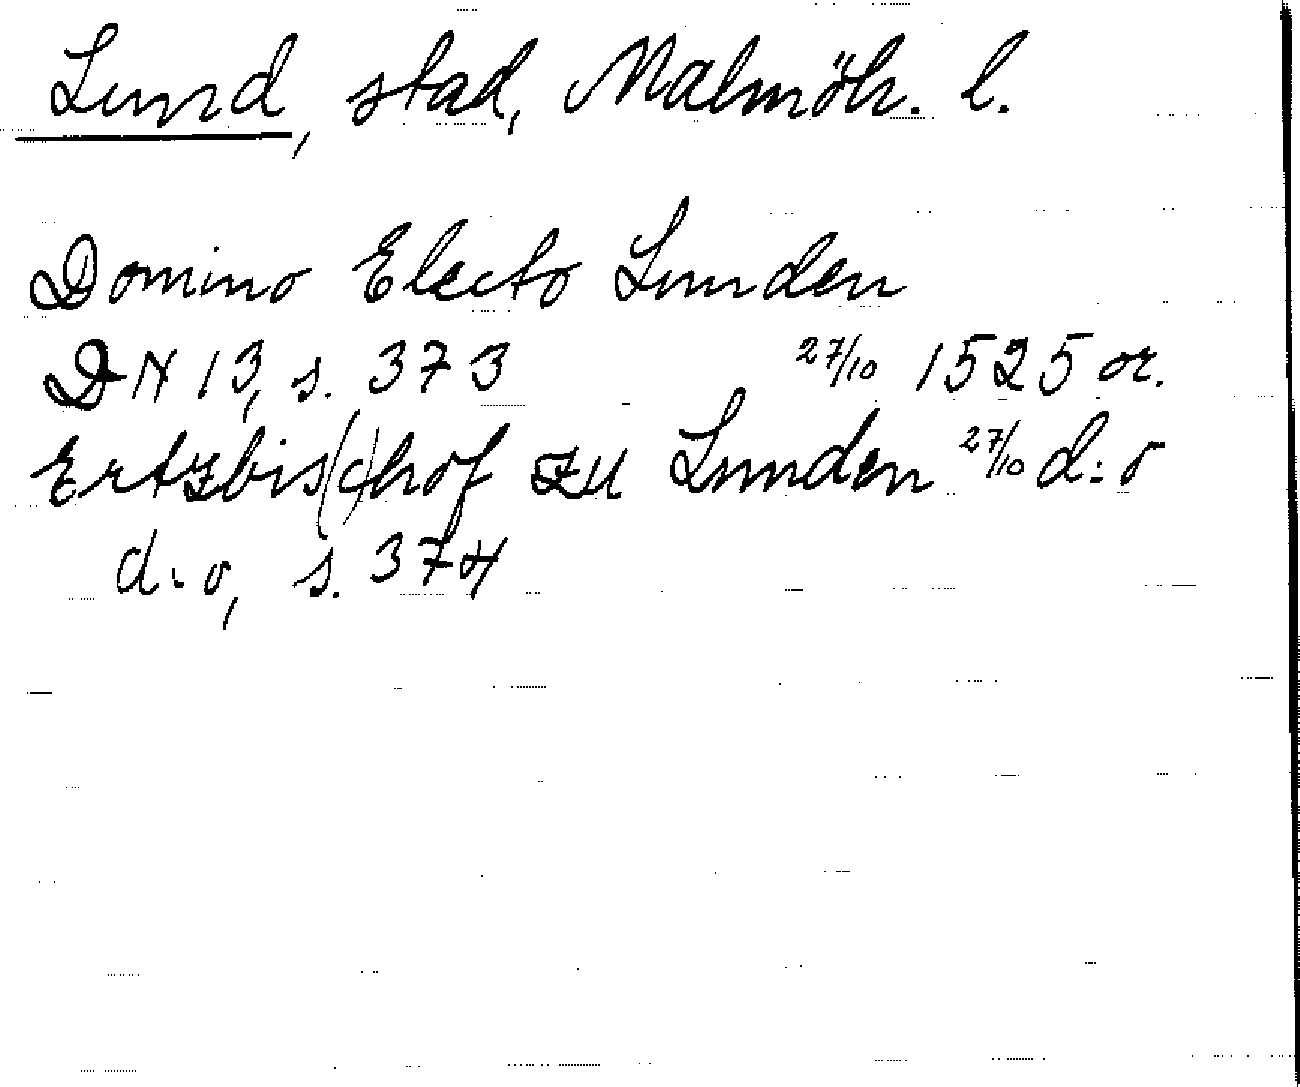 Lund, stad, Malmöh. l.
Domino Electo Lunden
DN 13, s. 373 27/10 1525 or.
Ertzbis(c)hof zu Lunden 27/10 d:o
d:o, s. 374